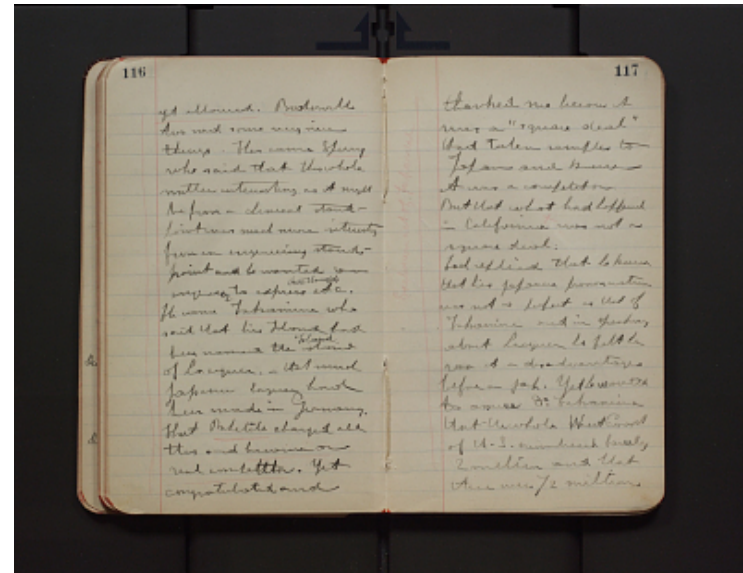 116
yet allowed.
then said some very nice
things. Then came Sperry
who said that the whole
matter interesting as it might
be from a chemical stand-
point was much more interesting
from an engineering stand-
point and he wanted
to express etc.
Then came Takamine who
said that his Island had
been named the Island
of Lacquer. – that much
Japanese lacquer had
been made in Germany.
But Bakelite changed all
this and became a
real competitor. Yet
congratulated and
117
thanked me because it
was a "square deal"
Had taken samples to
Japan and knew
it was a competitor
But that what had happened
in California was not a
square deal.
had replied that he knew
that his Japanese pronunciation
was not as perfect as that of
Takamine and in speaking
about Lacquer he felt he
was at a disadvantage
before a Jap. Yet
to assure Dr. Takamine
that the whole West Coast
of U.S. numbered barely
2 million and that
there were 1/2 million